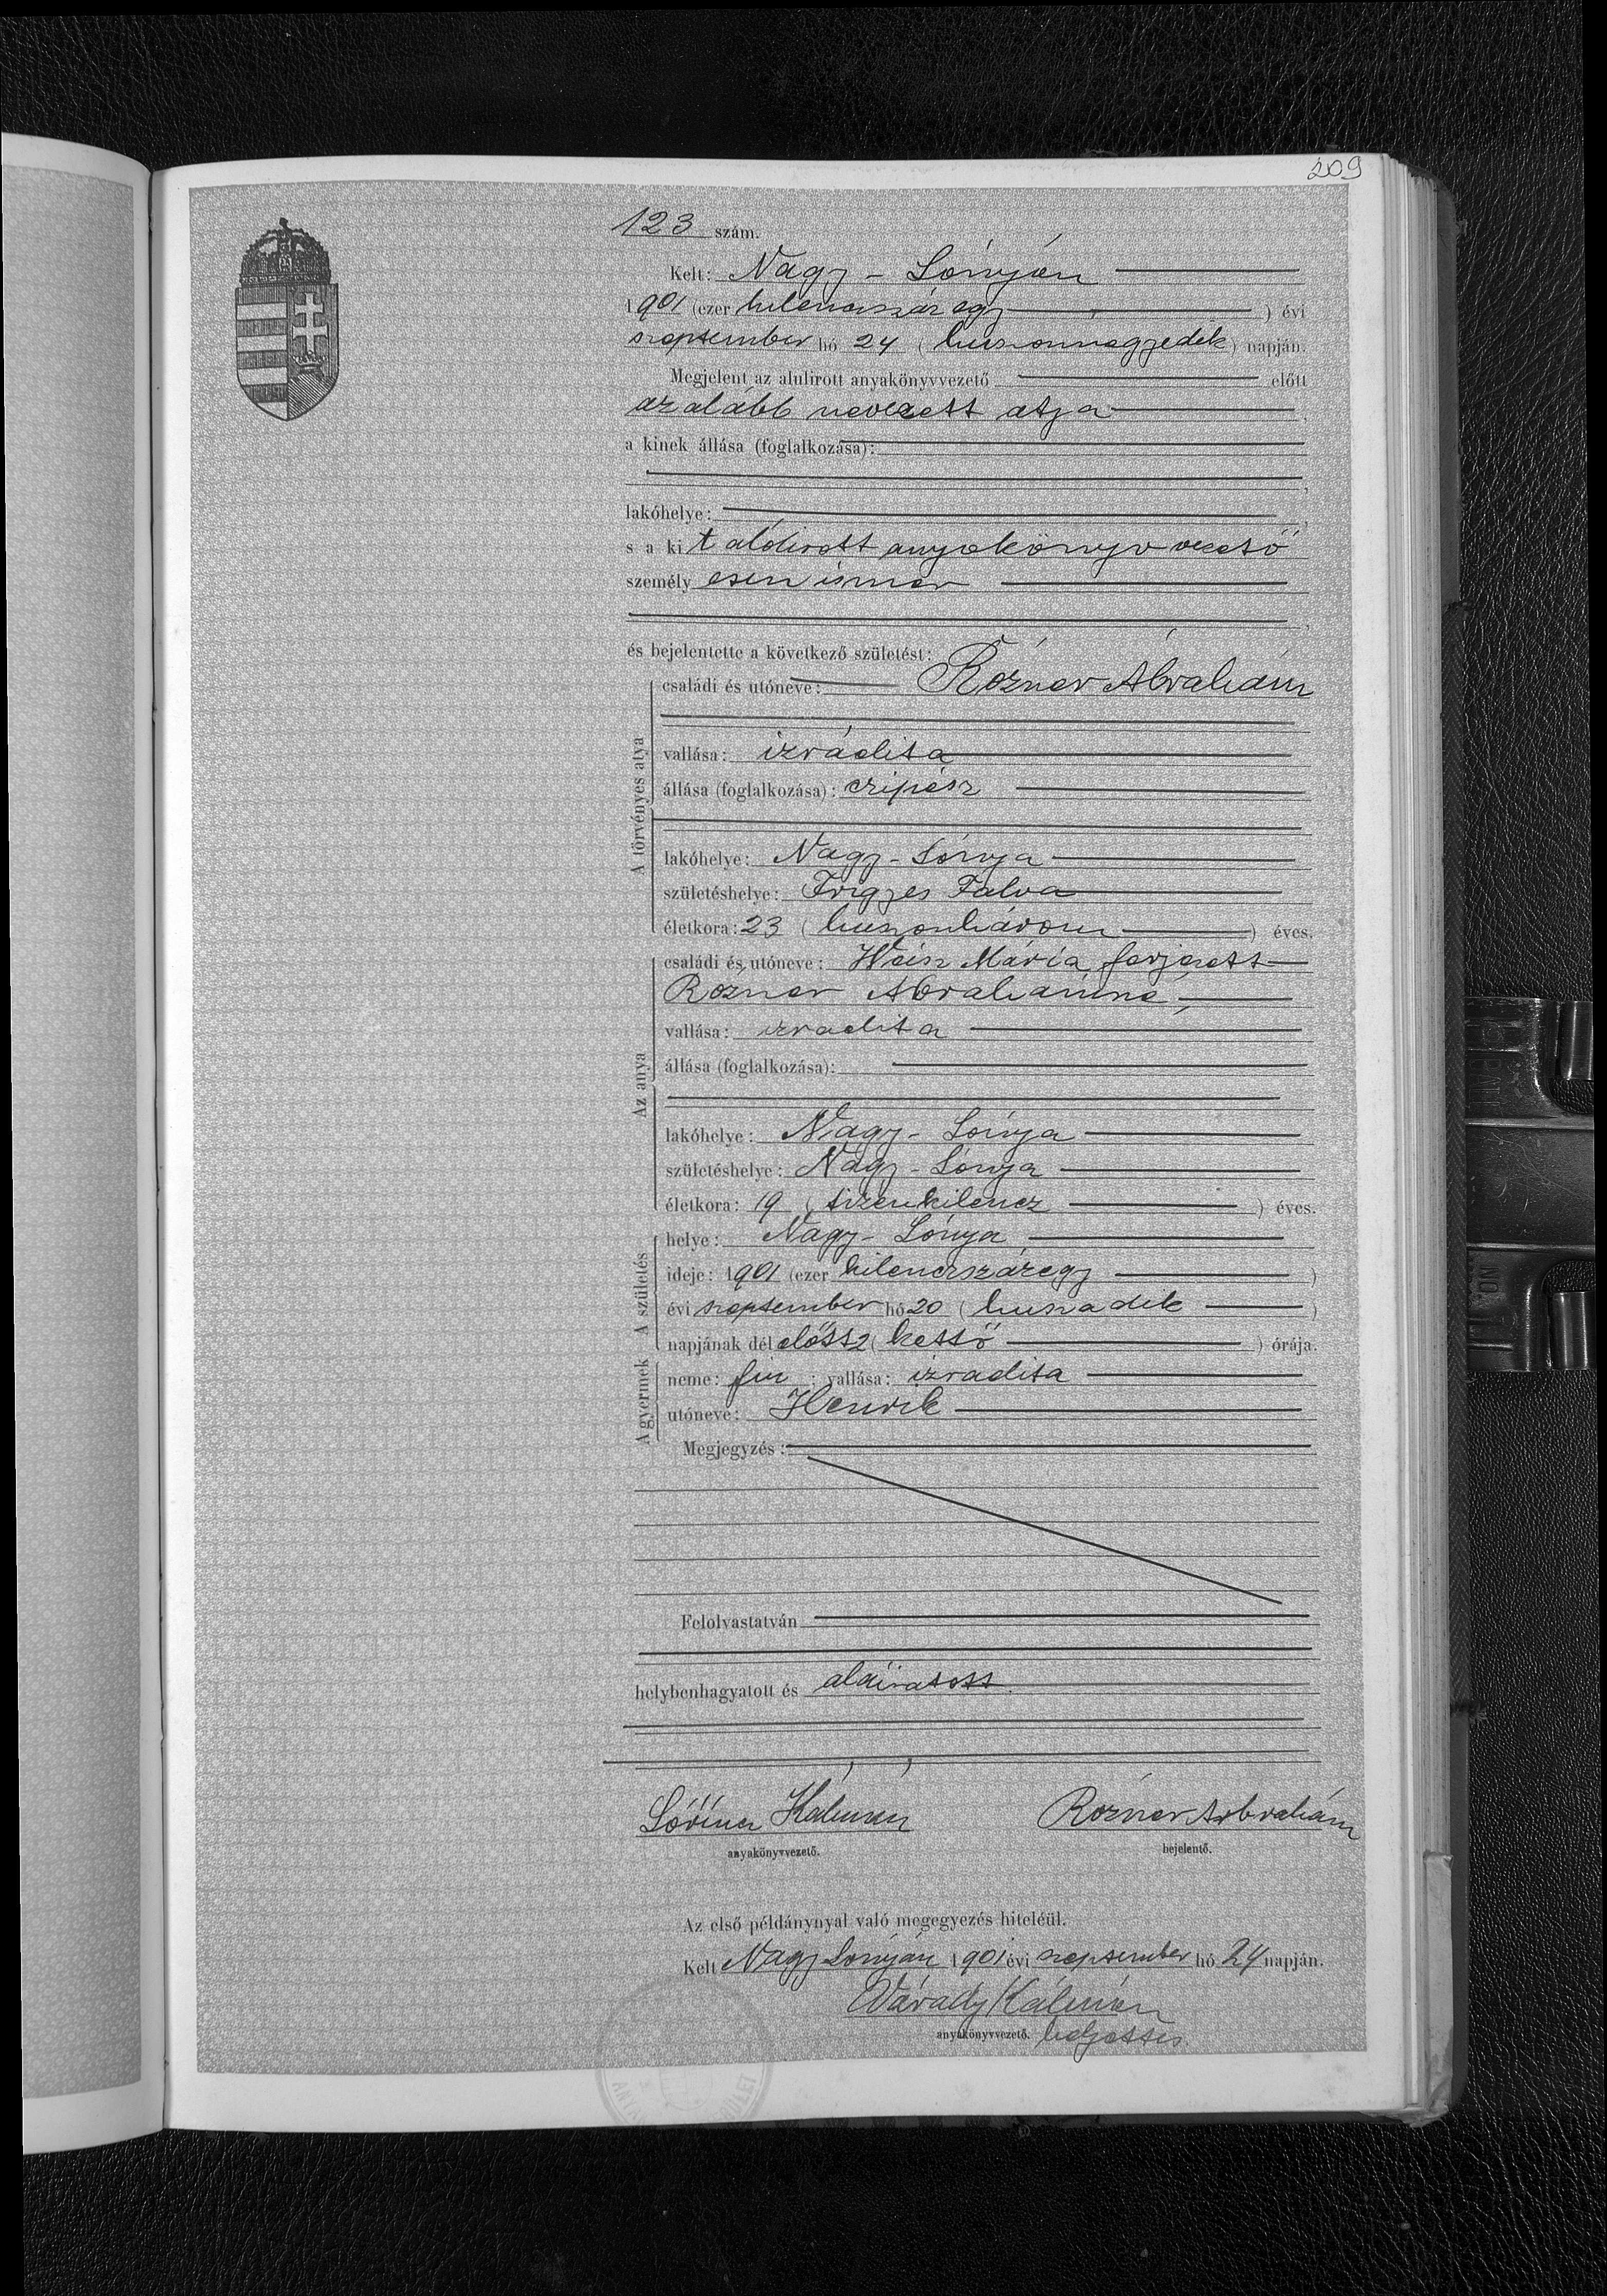 209
123 szám.
Kelt: Nagy-Lónyán
1901 (ezer kilenczszáz egy) évi
szeptember hó 24 (huszonnegyedik) napján.
Megjelent az alulirott anyakönyvvezető előtt
az alább nevezett atya,
a kinek állása (foglalkozása):
lakóhelye:
s a kit alólirott anyakönyv vezető
személyesen ismer
és bejelentette a következő születést:
A törvényes atya
családi és utóneve: Rózner Ábrahám
vallása: izráelita
állása (foglalkozása): czipész
lakóhelye: Nagy-Lónya
születéshelye: Frigyes Falva
életkora: 23 (huszonhárom) éves.
Az anya
családi és utóneve: Weisz Mária férjezett
Rózner Ábrahámné
vallása: izraelita
állása (foglalkozása):
lakóhelye: Nagy-Lónya
születéshelye: Nagy-Lónya
életkora: 19 (tizenkilencz) éves.
A születés
helye: Nagy-Lónya
ideje: 1901 (ezer kilenczszázegy)
évi szeptember hó 20 (huszadik)
napjának dél előtt 2 (kettő) órája.
A gyermek
neme: fiu; vallása: izraelita
utóneve: Henrik
Megjegyzés:
Felolvastatván
helybenhagyatott és aláiratott.
Lőrincz Kálmán Rózner Ábrahám
anyakönyvvezető. bejelentő.
Az első példánynyal való megegyezés hiteléül.
Kelt Nagy Lónyán 1901 évi szeptember hó 24 napján.
Várady Kálmán
anyakönyvvezető. helyettes.